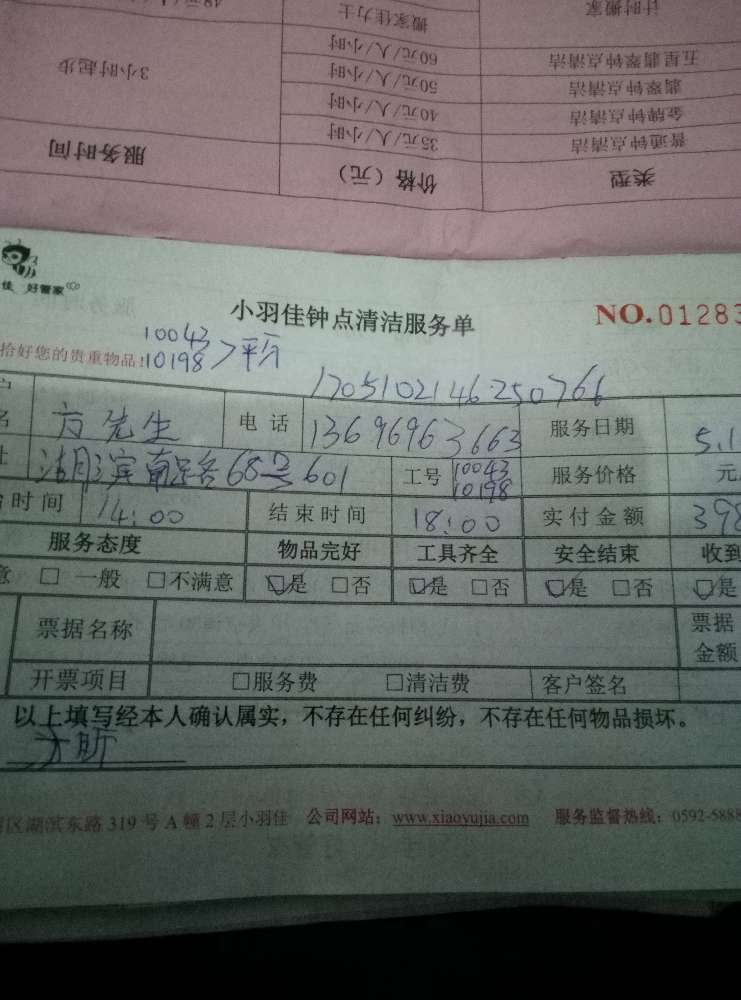 计时搬家 搬家佳力士
五星翡翠钟点清洁 60元/人/小时
翡翠钟点清洁 50元/人/小时 3小时起步
金牌钟点清洁 40元/人/小时
普通钟点清洁 35元/人/小时
类型 价格（元） 服务时间
佳 好管家
小羽佳钟点清洁服务单 NO.01283
拾好您的贵重物品！ 10043
10198 > 平分
1705102146250766
名 方先生 电话 13696963663 服务日期 5.1
址 湖滨南路68号601 工号 10043 10198 服务价格 元
时间 14:00 结束时间 18:00 实付金额 398
服务态度 物品完好 工具齐全 安全结束 收到
意 □一般 □不满意 ☑是 □否 ☑是 □否 ☑是 □否 ☑是
票据名称 票据金额
开票项目 □服务费 □清洁费 客户签名
以上填写经本人确认属实，不存在任何纠纷，不存在任何物品损坏。
方昕
区湖滨东路319号A幢2层小羽佳 公司网站：www.xiaoyujia.com 服务监督热线：0592-5888